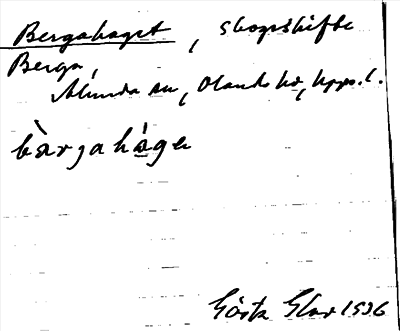 Bergahaget, skogsskifte
Berga,
Almunda sn, Olands hd, Upps. l.
bàrgahá̱ge
Gösta 1936